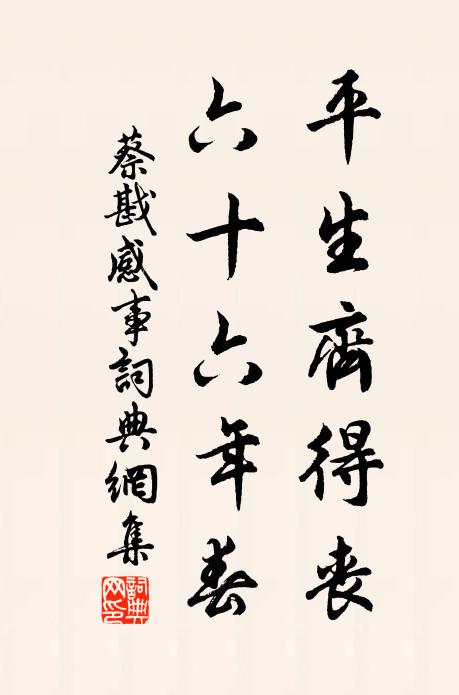 平生齊得喪
六十六年春
蔡戡感事詞典網集
詞典网印